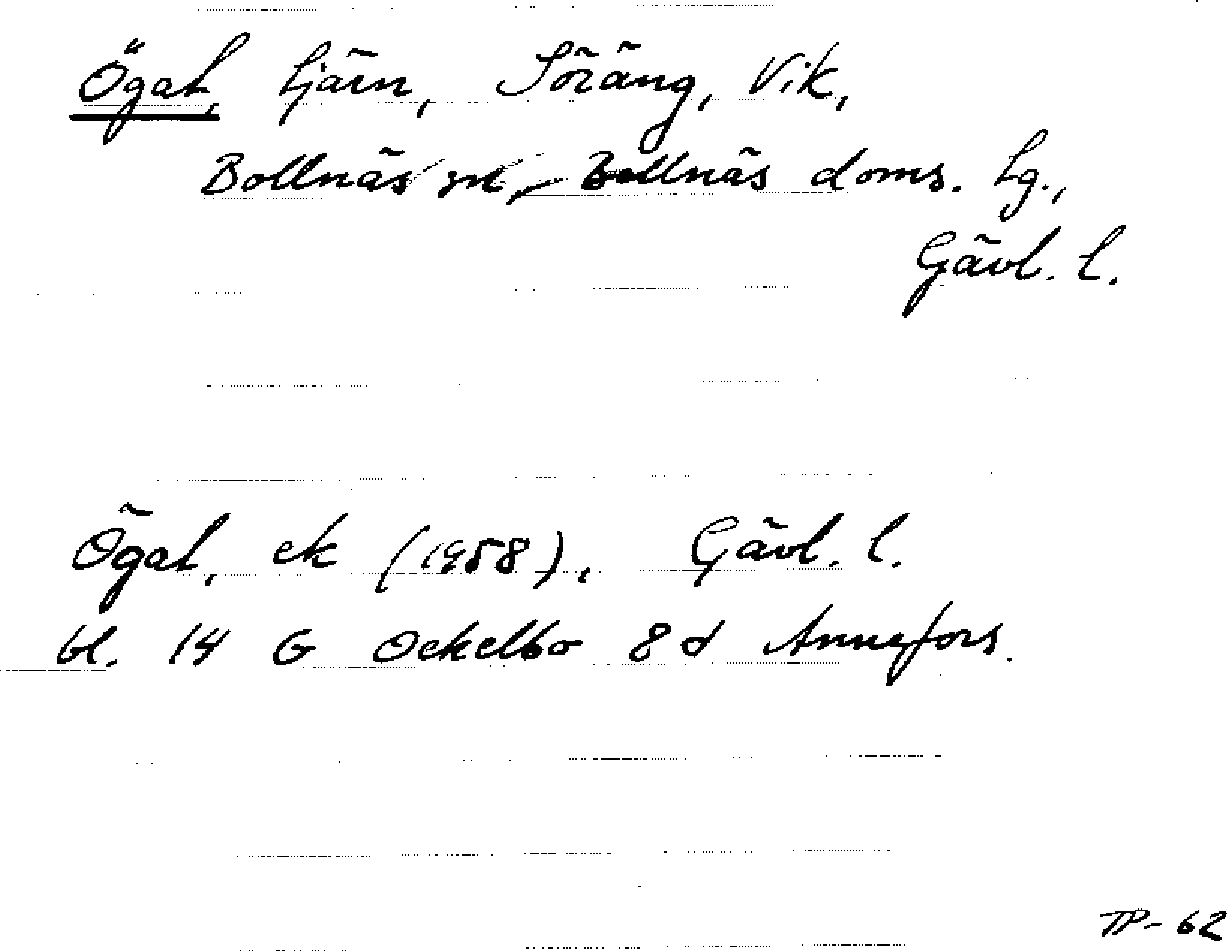 Ögat, tjärn, Söräng, Vik,
Bollnäs sn, Bollnäs doms. lg.,
Gävl. l.
Ögat, ek (1958), Gävl. l.
bl. 14 G Ockelbo 8 d Annefors.
TP-62